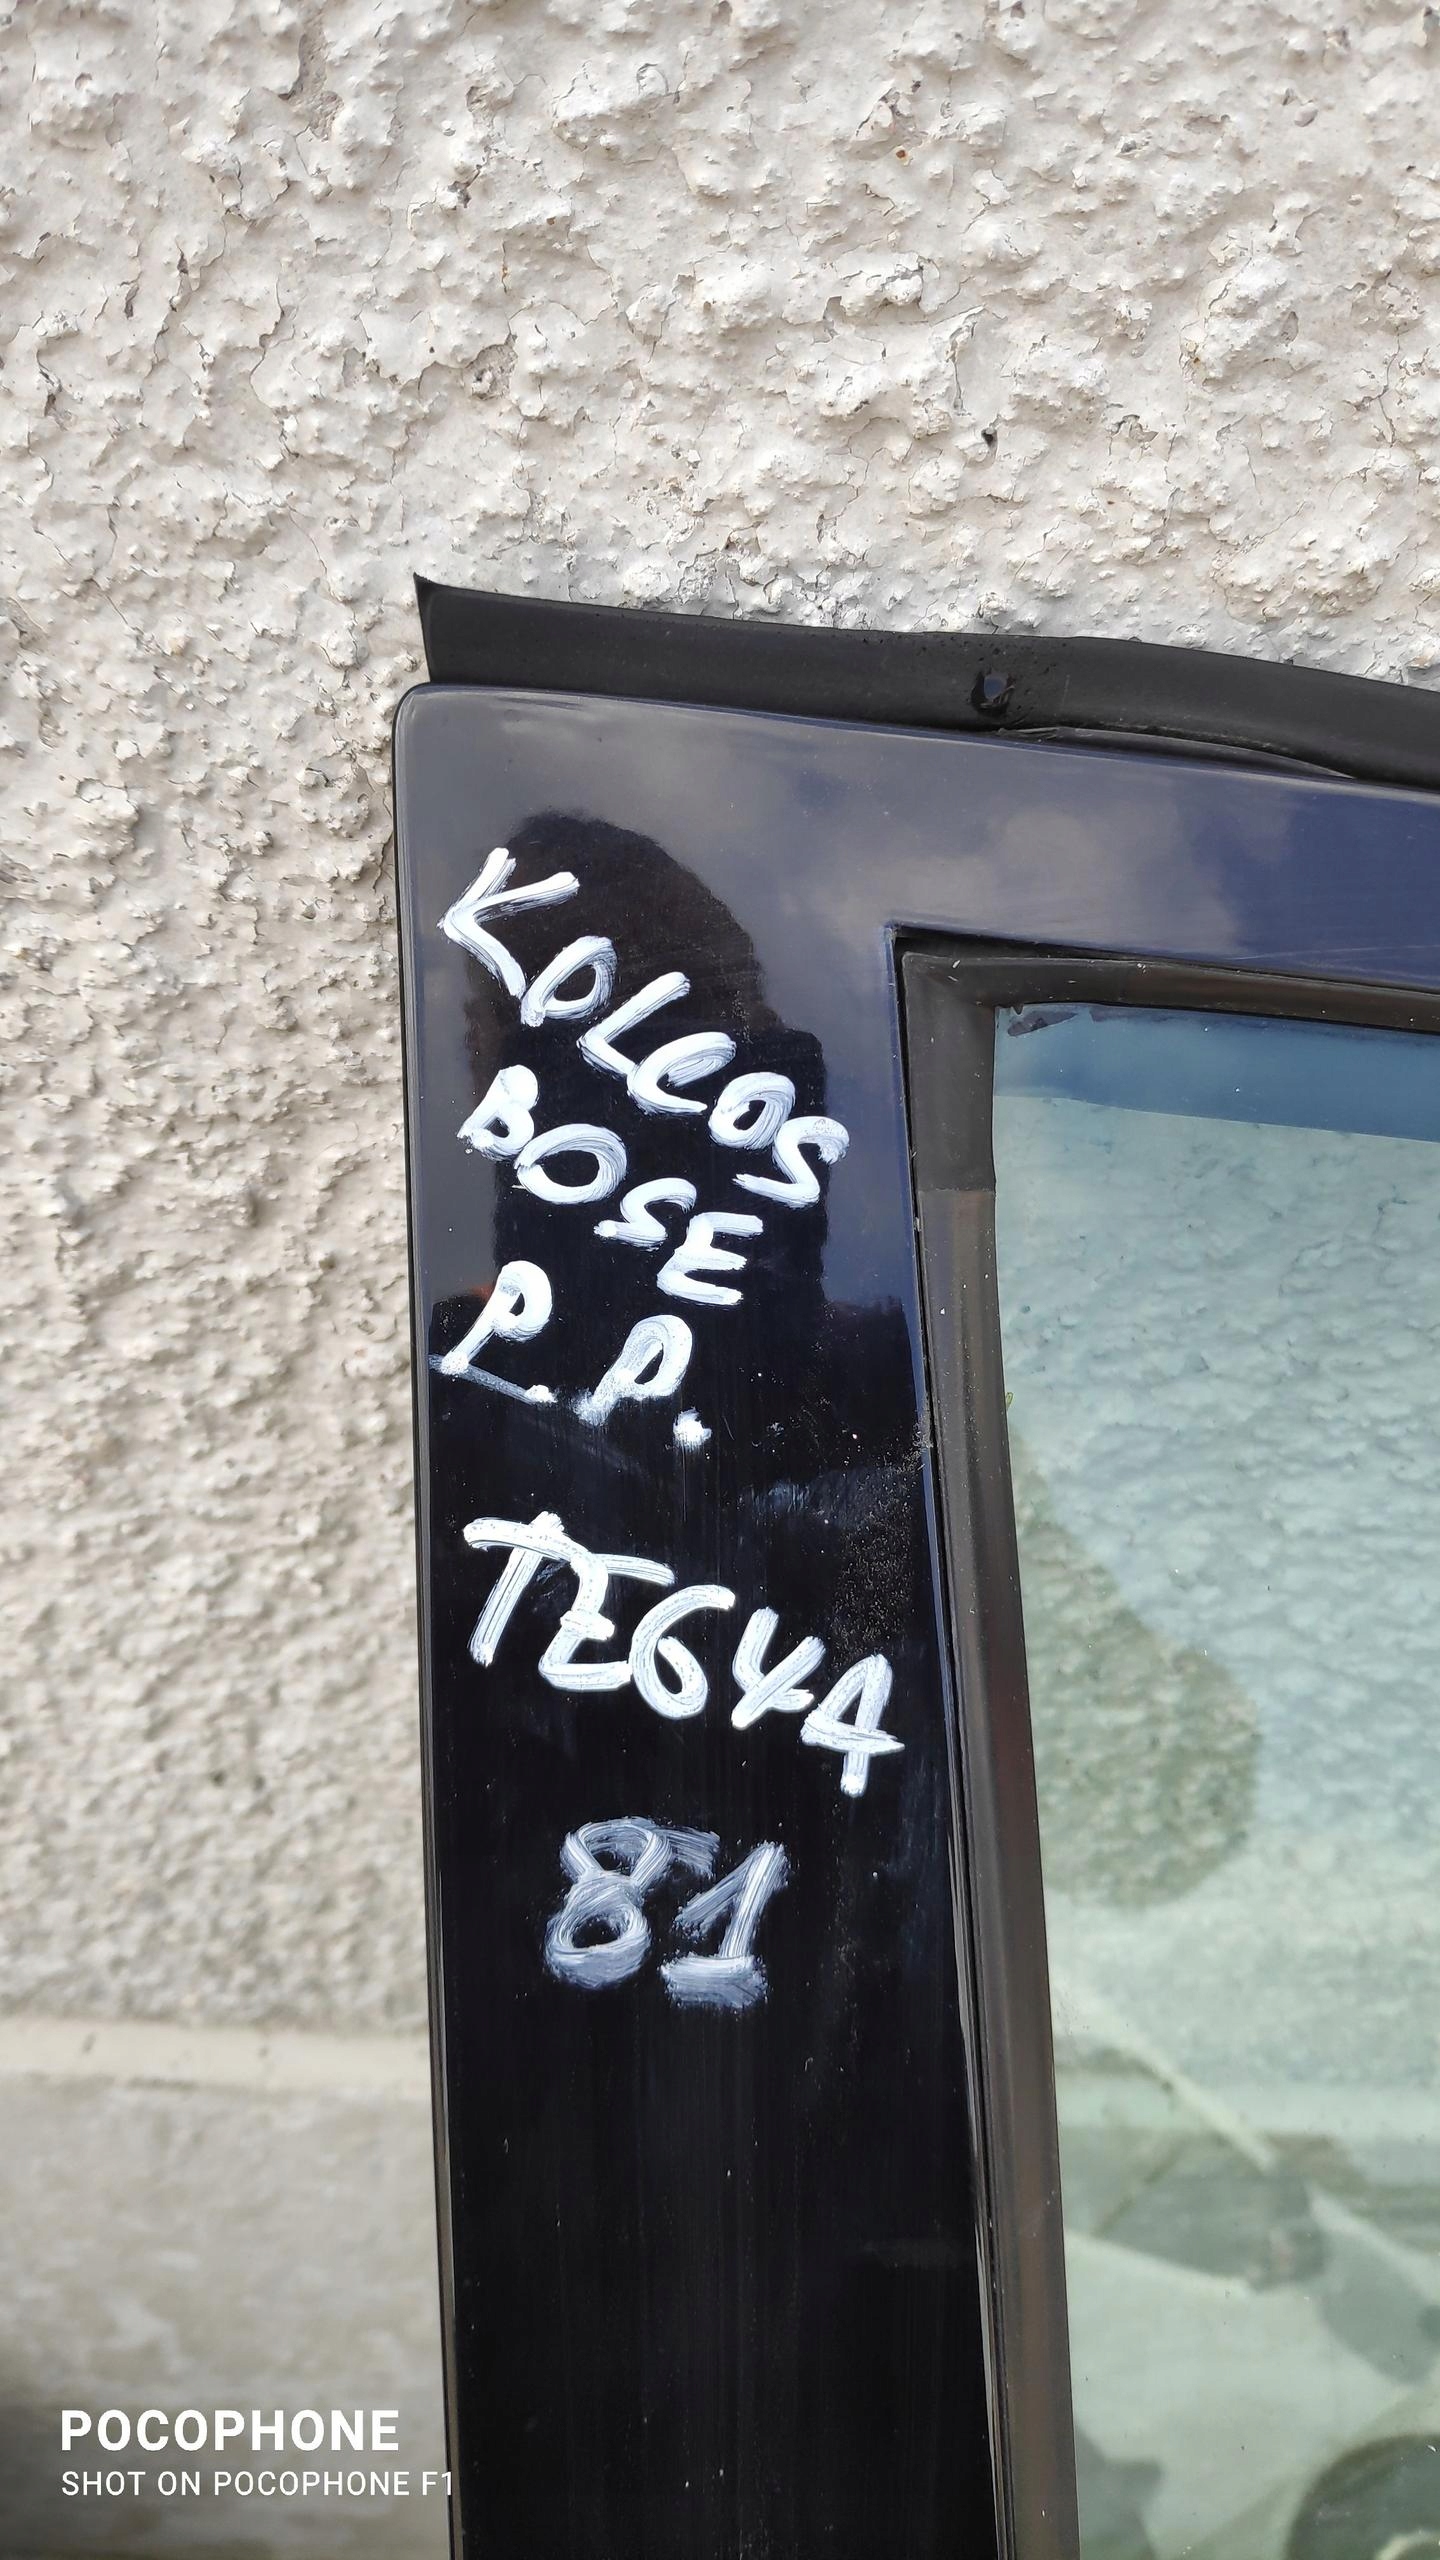 KOLEOS
BOSE
P.P.
TE64A
81
POCOPHONE
SHOT ON POCOPHONE F1